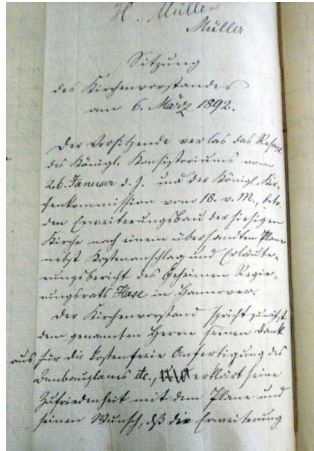 H. Müller
Müller
Sitzung
des Kirchenvorstandes
am 6. März 1892.
Der Vorsitzende verlas das Reskr.
des Königl. Konsistoriums vom
26. Januar d. J. und der Königl. Kir-
chenkommission vom 18. v. M., betr.
den Erweiterungsbau der hiesigen
Kirche nach einem übersandten Plane
nebst Kostenanschlag und Erläute-
rungsbericht des Geheimen Regie-
rungsrats Hase in Hannover.
Der Kirchenvorstand spricht zunächst
dem genannten Herrn seinen Dank
aus für die kostenfreie Anfertigung des
Umbauplans etc., erklärt seine
Zufriedenheit mit dem Plane und
seinen Wunsch, daß die Erweiterung